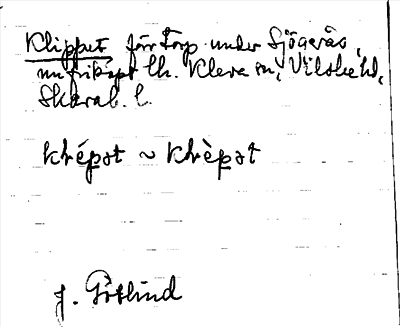 Klippet förr torp under Sjögerås,
nu friköpt lh. Kleva sn, Vilske hd,
Skarab. l.
klépət ~ klèpət
J. Götlind